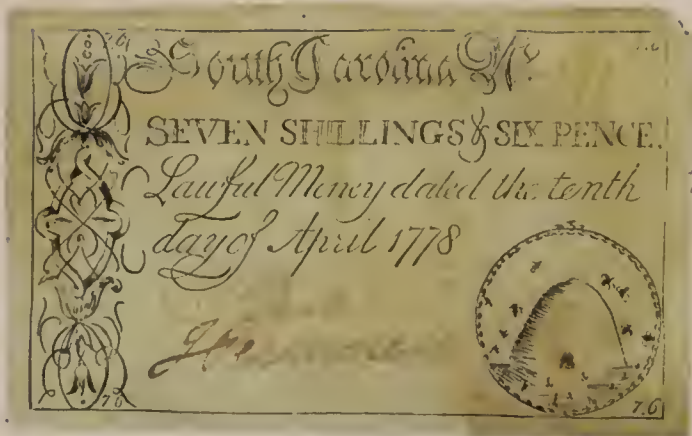 South Carolina No.
SEVEN SHILLINGS & SIX PENCE.
Lawful Money dated the tenth
day of April 1778
7.6